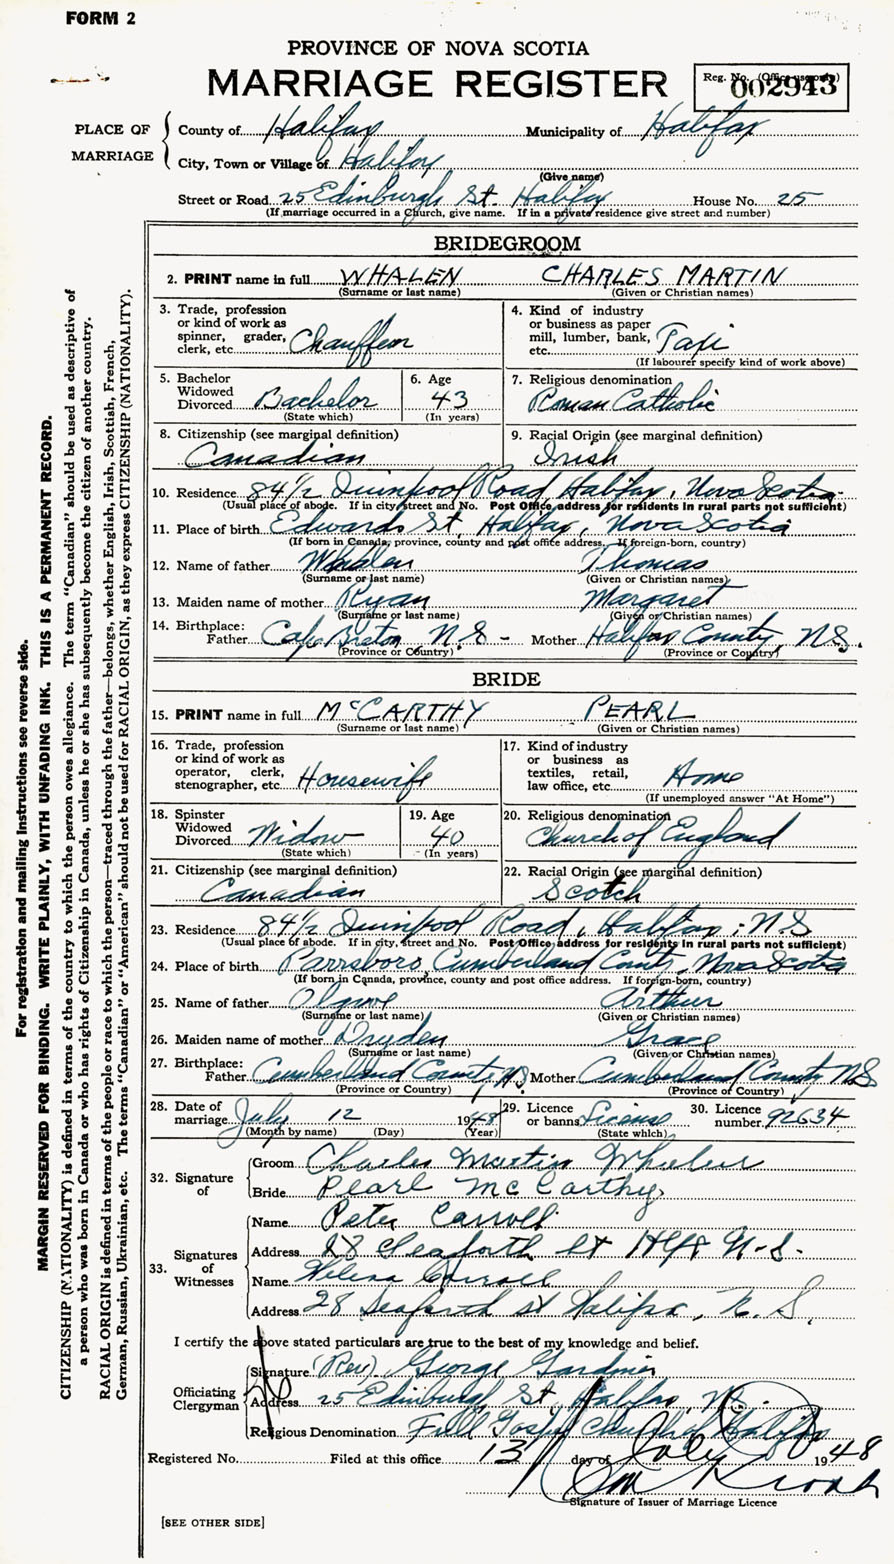 FORM 2
PROVINCE OF NOVA SCOTIA
MARRIAGE REGISTER
Reg. No. (Office use only)
002943
PLACE OF MARRIAGE
County of Halifax Municipality of Halifax
City, Town or Village of Halifax
(Give name)
Street or Road 25 Edinburgh St. Halifax House No. 25
(If marriage occurred in a Church, give name. If in a private residence give street and number)
BRIDEGROOM
2. PRINT name in full WHALEN CHARLES MARTIN
(Surname or last name) (Given or Christian names)
3. Trade, profession or kind of work as spinner, grader, clerk, etc. Chauffeur
4. Kind of industry or business as paper mill, lumber, bank, etc. Taxi
(If labourer specify kind of work above)
5. Bachelor Widowed Divorced Bachelor
(State which)
6. Age 43
(In years)
7. Religious denomination
Roman Catholic
8. Citizenship (see marginal definition)
Canadian
9. Racial Origin (see marginal definition)
Irish
10. Residence 84 1/2 Quinpool Road, Halifax, Nova Scotia
(Usual place of abode. If in city, street and No. Post Office address for residents in rural parts not sufficient)
11. Place of birth Edwards St, Halifax, Nova Scotia
(If born in Canada, province, county and post office address. If foreign-born, country)
12. Name of father Whalen Thomas
(Surname or last name) (Given or Christian names)
13. Maiden name of mother Ryan Margaret
(Surname or last name) (Given or Christian names)
14. Birthplace: Father Cape Breton N.S - Mother Halifax County, N.S.
(Province or Country) (Province or Country)
BRIDE
15. PRINT name in full McCARTHY PEARL
(Surname or last name) (Given or Christian names)
16. Trade, profession or kind of work as operator, clerk, stenographer, etc. Housewife
17. Kind of industry or business as textiles, retail, law office, etc. Home
(If unemployed answer "At Home")
18. Spinster Widowed Divorced Widow
(State which)
19. Age 40
(In years)
20. Religious denomination
Church of England
21. Citizenship (see marginal definition)
Canadian
22. Racial Origin (see marginal definition)
Scotch
23. Residence 84 1/2 Quinpool Road, Halifax, N.S
(Usual place of abode. If in city, street and No. Post Office address for residents in rural parts not sufficient)
24. Place of birth Parrsboro, Cumberland County, Nova Scotia
(If born in Canada, province, county and post office address. If foreign-born, country)
25. Name of father Arthur
(Surname or last name) (Given or Christian names)
26. Maiden name of mother Dryden Grace
(Surname or last name) (Given or Christian names)
27. Birthplace: Father Cumberland County, N.S. Mother Cumberland County N.S
(Province or Country) (Province of Country)
28. Date of marriage July 12 1948
(Month by name) (Day) (Year)
29. Licence or banns License
(State which)
30. Licence number 92634
32. Signature of
Groom Charles Martin Whalen
Bride Pearl McCarthy
33. Signatures of Witnesses
Name Peter Carroll
Address 28 Seaforth St Hfx N-S-
Name Helena Carroll
Address 28 Seaforth St Halifax, N.S.
I certify the above stated particulars are true to the best of my knowledge and belief.
Officiating Clergyman
Signature (Rev) George Gardner
Address 25 Edinburgh, St, Halifax, N.S.
Religious Denomination Full Gospel Church Halifax
Registered No. Filed at this office 13 day of July 1948
Signature of Issuer of Marriage Licence
[SEE OTHER SIDE]
For registration and mailing instructions see reverse side.
MARGIN RESERVED FOR BINDING. WRITE PLAINLY, WITH UNFADING INK. THIS IS A PERMANENT RECORD.
CITIZENSHIP (NATIONALITY) is defined in terms of the country to which the person owes allegiance. The term "Canadian" should be used as descriptive of
a person who was born in Canada or who has rights of Citizenship in Canada, unless he or she has subsequently become the citizen of another country.
RACIAL ORIGIN is defined in terms of the people or race to which the person—traced through the father—belongs, whether English, Irish, Scottish, French,
German, Russian, Ukrainian, etc. The terms "Canadian" or "American" should not be used for RACIAL ORIGIN, as they express CITIZENSHIP (NATIONALITY).